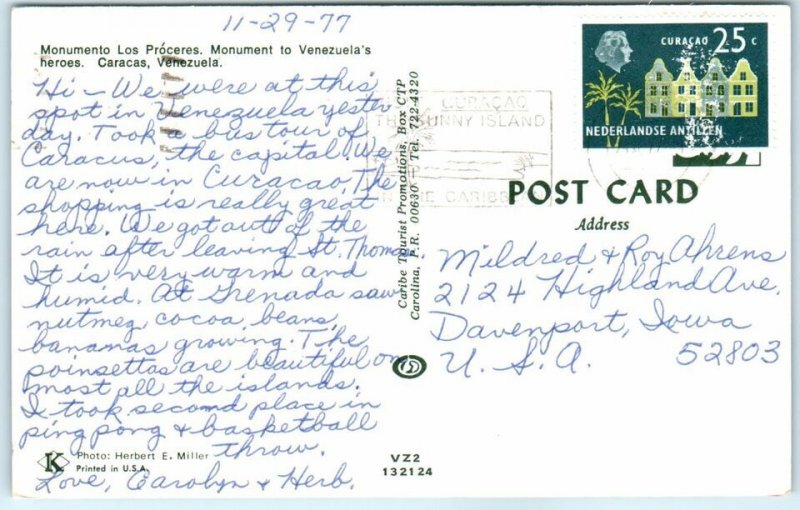 11-29-77
Monumento Los Próceres. Monument to Venezuela's
heroes. Caracas, Venezuela.
Hi - We were at this
spot in Venezuela yester
day. Took a bus tour of
Caracus, the capital. We
are now in Curacao. The
shopping is really great
here. We got out of the
rain after leaving St. Thomas.
It is very warm and
humid. At Grenada saw
nutmeg, cocoa, beans,
bananas growing. The
poinsettas are beautiful on
most all the islands.
I took second place in
ping pong & basketball
throw.
Love, Carolyn & Herb.
K
Photo: Herbert E. Miller
Printed in U.S.A.
Caribe Tourist Promotions, Box CTP
Carolina, P.R. 00630 - Tel. 722-4320
VZ2
132124
CURAÇAO
THE SUNNY ISLAND
IN THE CARIBBEAN
CURAÇAO 25 C
NEDERLANDSE ANTILLEN
POST CARD
Address
Mildred & Roy Ahrens
2124 Highland Ave.
Davenport, Iowa
U.S.A. 52803